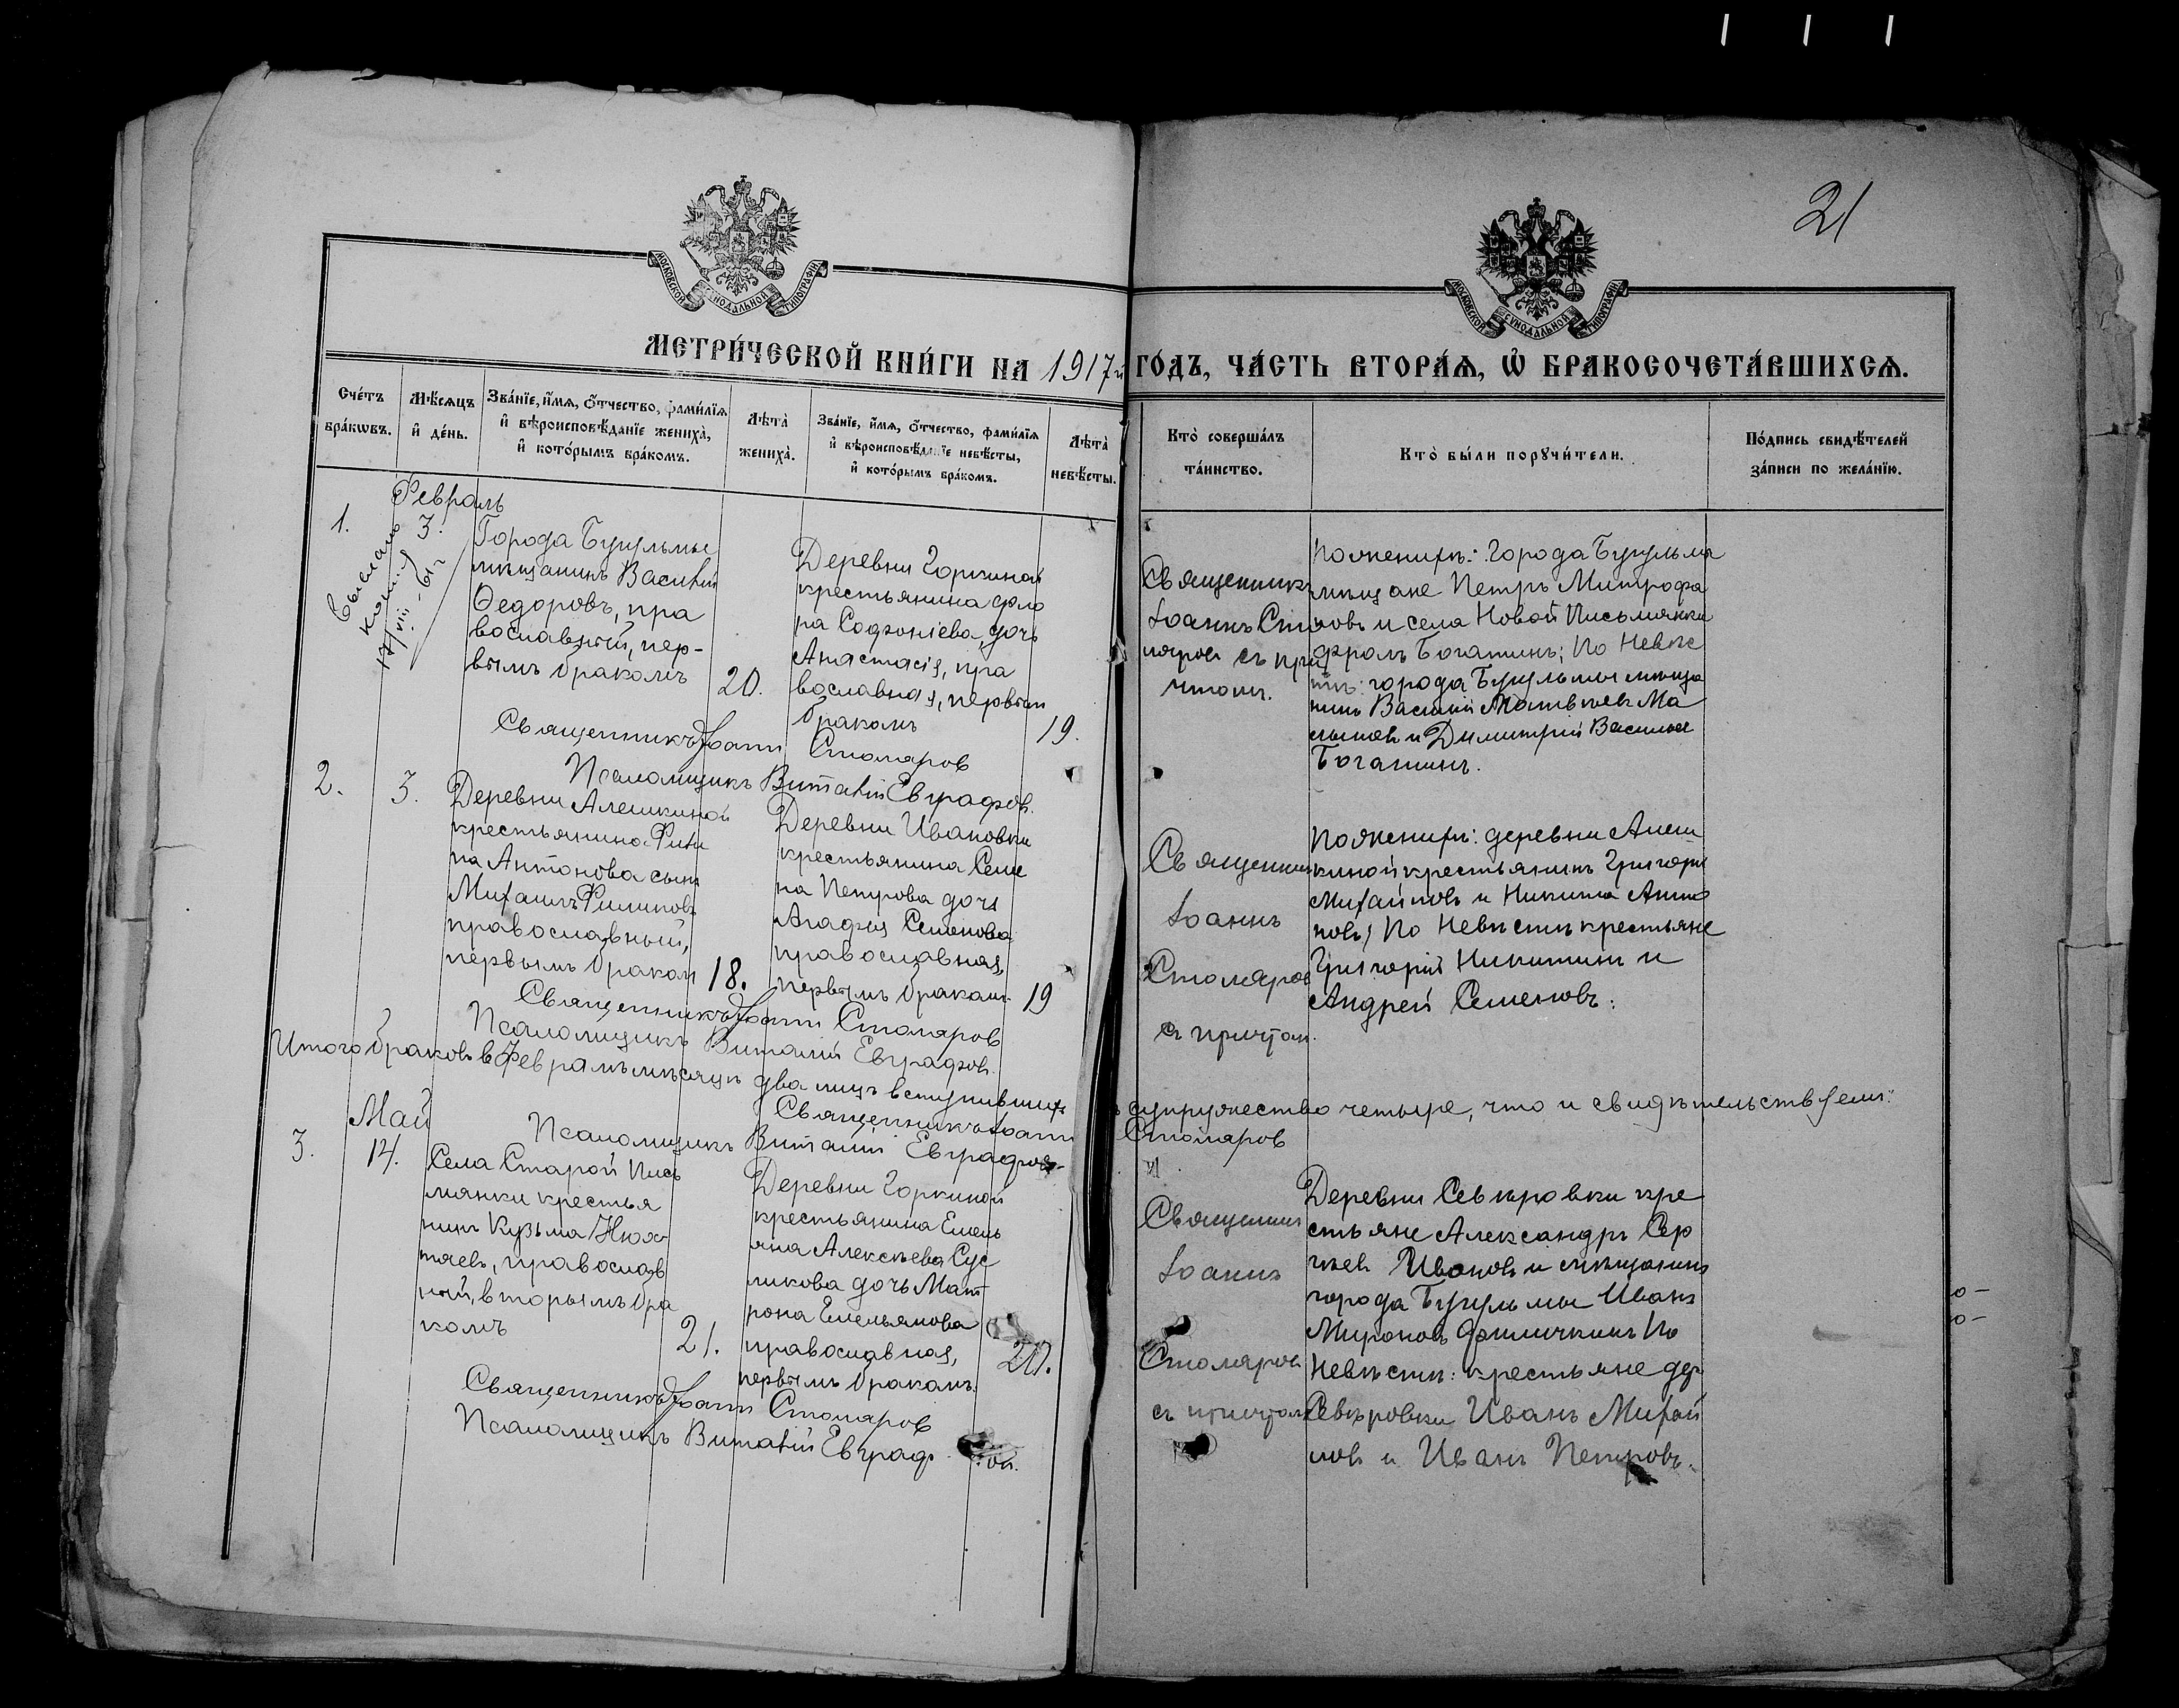 21
МОСКОВСКОЙ СѴНОДАЛЬНОЙ ТИПОГРАФІИ
МОСКОВСКОЙ СѴНОДАЛЬНОЙ ТИПОГРАФІИ
МЕТРИ́ЧЕСКОЙ КНИ́ГИ НА 1917й ГО́ДЪ, ЧА́СТЬ ВТОРА́Ѧ, Ѽ БРАКОСОЧЕТА́ВШИХСѦ.
Сче́тъ бра́кѡвъ.
Мѣ́сѧцъ и҆ де́нь.
Зва́нїе, и҆́мѧ, ѻ҆́тчество, фами́лїѧ и҆ вѣроисповѣ́данїе жениха̀, и҆ кото́рымъ бра́комъ.
Лѣта̀ жениха̀.
Зва́нїе, и҆́мѧ, ѻ҆́тчество, фами́лїѧ и҆ вѣроисповѣ́данїе невѣ́сты, и҆ кото́рымъ бра́комъ.
Лѣта̀ невѣ́сты.
Кто̀ соверша́лъ та́инство.
Кто̀ бы́ли порꙋчи́тели.
По́дпись свидѣ́телей за́писи по жела́нїю.
Февраль
1.
3.
Выслана
17/VIII-61г
Города Бугульмы
мѣщанинъ Василій
Ѳедоровъ, пра
вославный, пер-
вымъ бракомъ
20.
Деревни Горкиной
крестьянина Фло
ра Софоніева дочь
Анастасія, пра
вославная, первым
бракомъ
19.
Священникъ
Іоаннъ Сто
ляров съ при
чтомъ.
По женихѣ: города Бугульмы
мѣщане Петръ Митрофа
новъ и села Новой Письмянки
Фролъ Богатинъ; По Невѣс
тѣ: города Бугульмы мѣща
нинъ Василій Матвѣевъ Ма
лышев и Димитрій Васильев
Богатинъ.
Священникъ Іоанн Столяров
Псаломщикъ Виталій Евграфов.
2.
3.
Деревни Алешкиной
крестьянина Фили
па Антонова сынъ
Михаилъ Филиповъ
православный,
первымъ браком
18.
Деревни Ивановки
крестьянина Семе
на Петрова дочь
Агафія Семенова
православная,
первымъ браком
19
Священник
Іоаннъ
Столяров
съ причтом.
По женихѣ: деревни Алеш
киной крестьянинъ Григорій
Михайловъ и Никита Анто
новъ; По Невѣстѣ крестьяне
Григорій Никитинъ и
Андрей Семеновъ.
Священникъ Іоанн Столяров
Псаломщикъ Виталій Евграфов.
Итого браковъ в Февралѣ мѣсяцѣ два лицъ вступившихъ въ супружество четыре, что и свидѣтельствуемъ:
Священникъ Іоанн Столяров
Псаломщикъ Виталій Евграфов.
Май
3.
14.
Села Старой Пись
мянки крестья
нинъ Кузьма
православ
ный, вторымъ бра
комъ
21.
Деревни Горкиной
крестьянина Емель
яна Алексѣева Сус
ликова дочь Мат
рона Емельянова
православная,
первымъ бракомъ.
20.
Священник
Іоаннъ
Столяров
съ причтом
Деревни Севѣровки кре
стьяне Александръ Сер
гѣев Ивановъ и мѣщанинъ
города Бугульмы Иванъ
Мироновъ По
Невѣстѣ: крестьяне дер
Севѣровки Иванъ Михай
лов и Иванъ Петровъ.
Священникъ Іоанн Столяров
Псаломщикъ Виталій Евграфов.